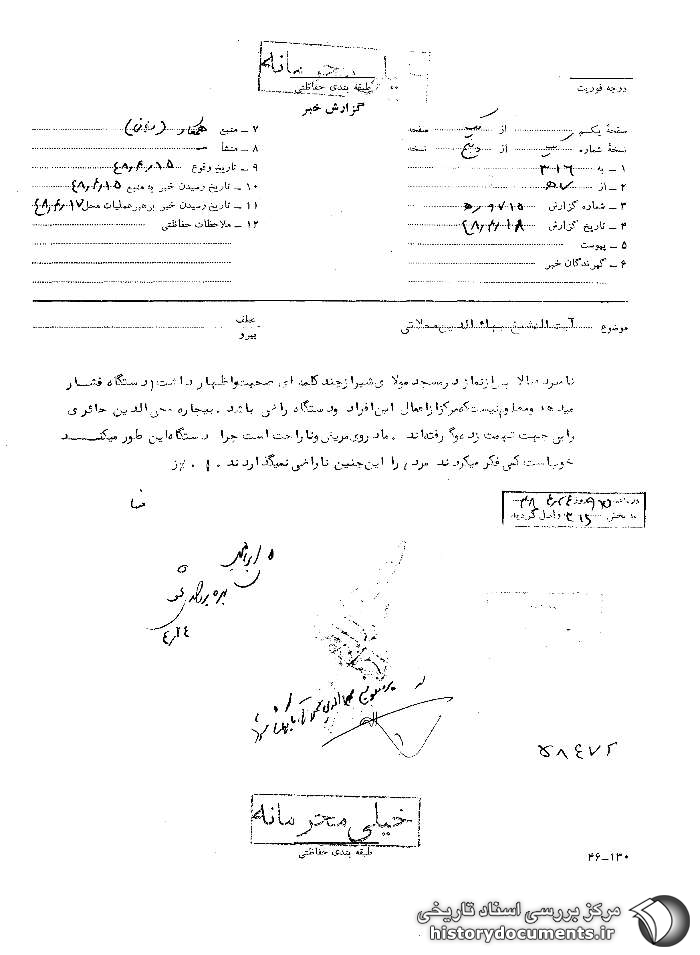 طبقه بندی حفاظتی
درجه فوریت
گزارش خبر
صفحهٔ یکم از یک صفحه
نسخهٔ شماره از پنج نسخه
۱ ـ به ۳۱۶
۲ ـ از ۵۷
۳ ـ شماره گزارش ۵۰۹۷۱۵
۴ ـ تاریخ گزارش ۴۸٫۴٫۱۸
۵ ـ پیوست
۶ ـ گیرندگان خبر
۷ ـ منبع همکار
۸ ـ منشأ
۹ ـ تاریخ وقوع ۴۸٫۴٫۱۵
۱۰ ـ تاریخ رسیدن خبر به منبع ۴۸٫۴٫۱۵
۱۱ ـ تاریخ رسیدن خبر برهبر عملیات محل ۴۸٫۴٫۱۷
۱۲ ـ ملاحظات حفاظتی
موضوع آیت اله شیخ بهاءالدین محلاتی
عطف
پیرو
نامبرده بالا پس از نماز در مسجد مولای شیراز چند کلمه ای صحبت و اظهار داشت دستگاه فشار
میدهد و معلوم نیست که مرکز از اعمال این افراد و دستگاه راضی باشد . بیچاره محی الدین حائری
را بی جهت تهمت زده و گرفته اند . مادر وی مریض و ناراحت است چرا دستگاه این طور میکند
خوب است کمی فکر میکردند مردم را این چنین ناراضی نمیگذاردند
به بخش ۳۱۶ واصل گردید
۴٫۲۴
۵۸۴۷۲
خیلی محرمانه
طبقه بندی حفاظتی
۴۶-۱۳۰
مرکز بررسی اسناد تاریخی
historydocuments.ir